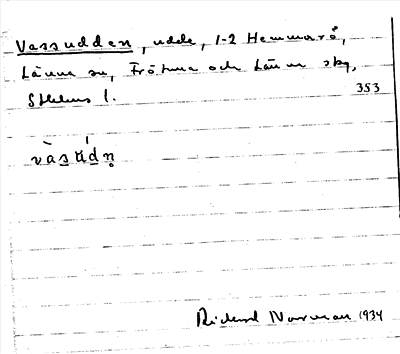 Vassudden, udde, 1-2 Hemmarö,
Länna sn, Frötuna och Länna skg,
Sthlms l.
353
vàsúdn̥
Richard Norrman 1934